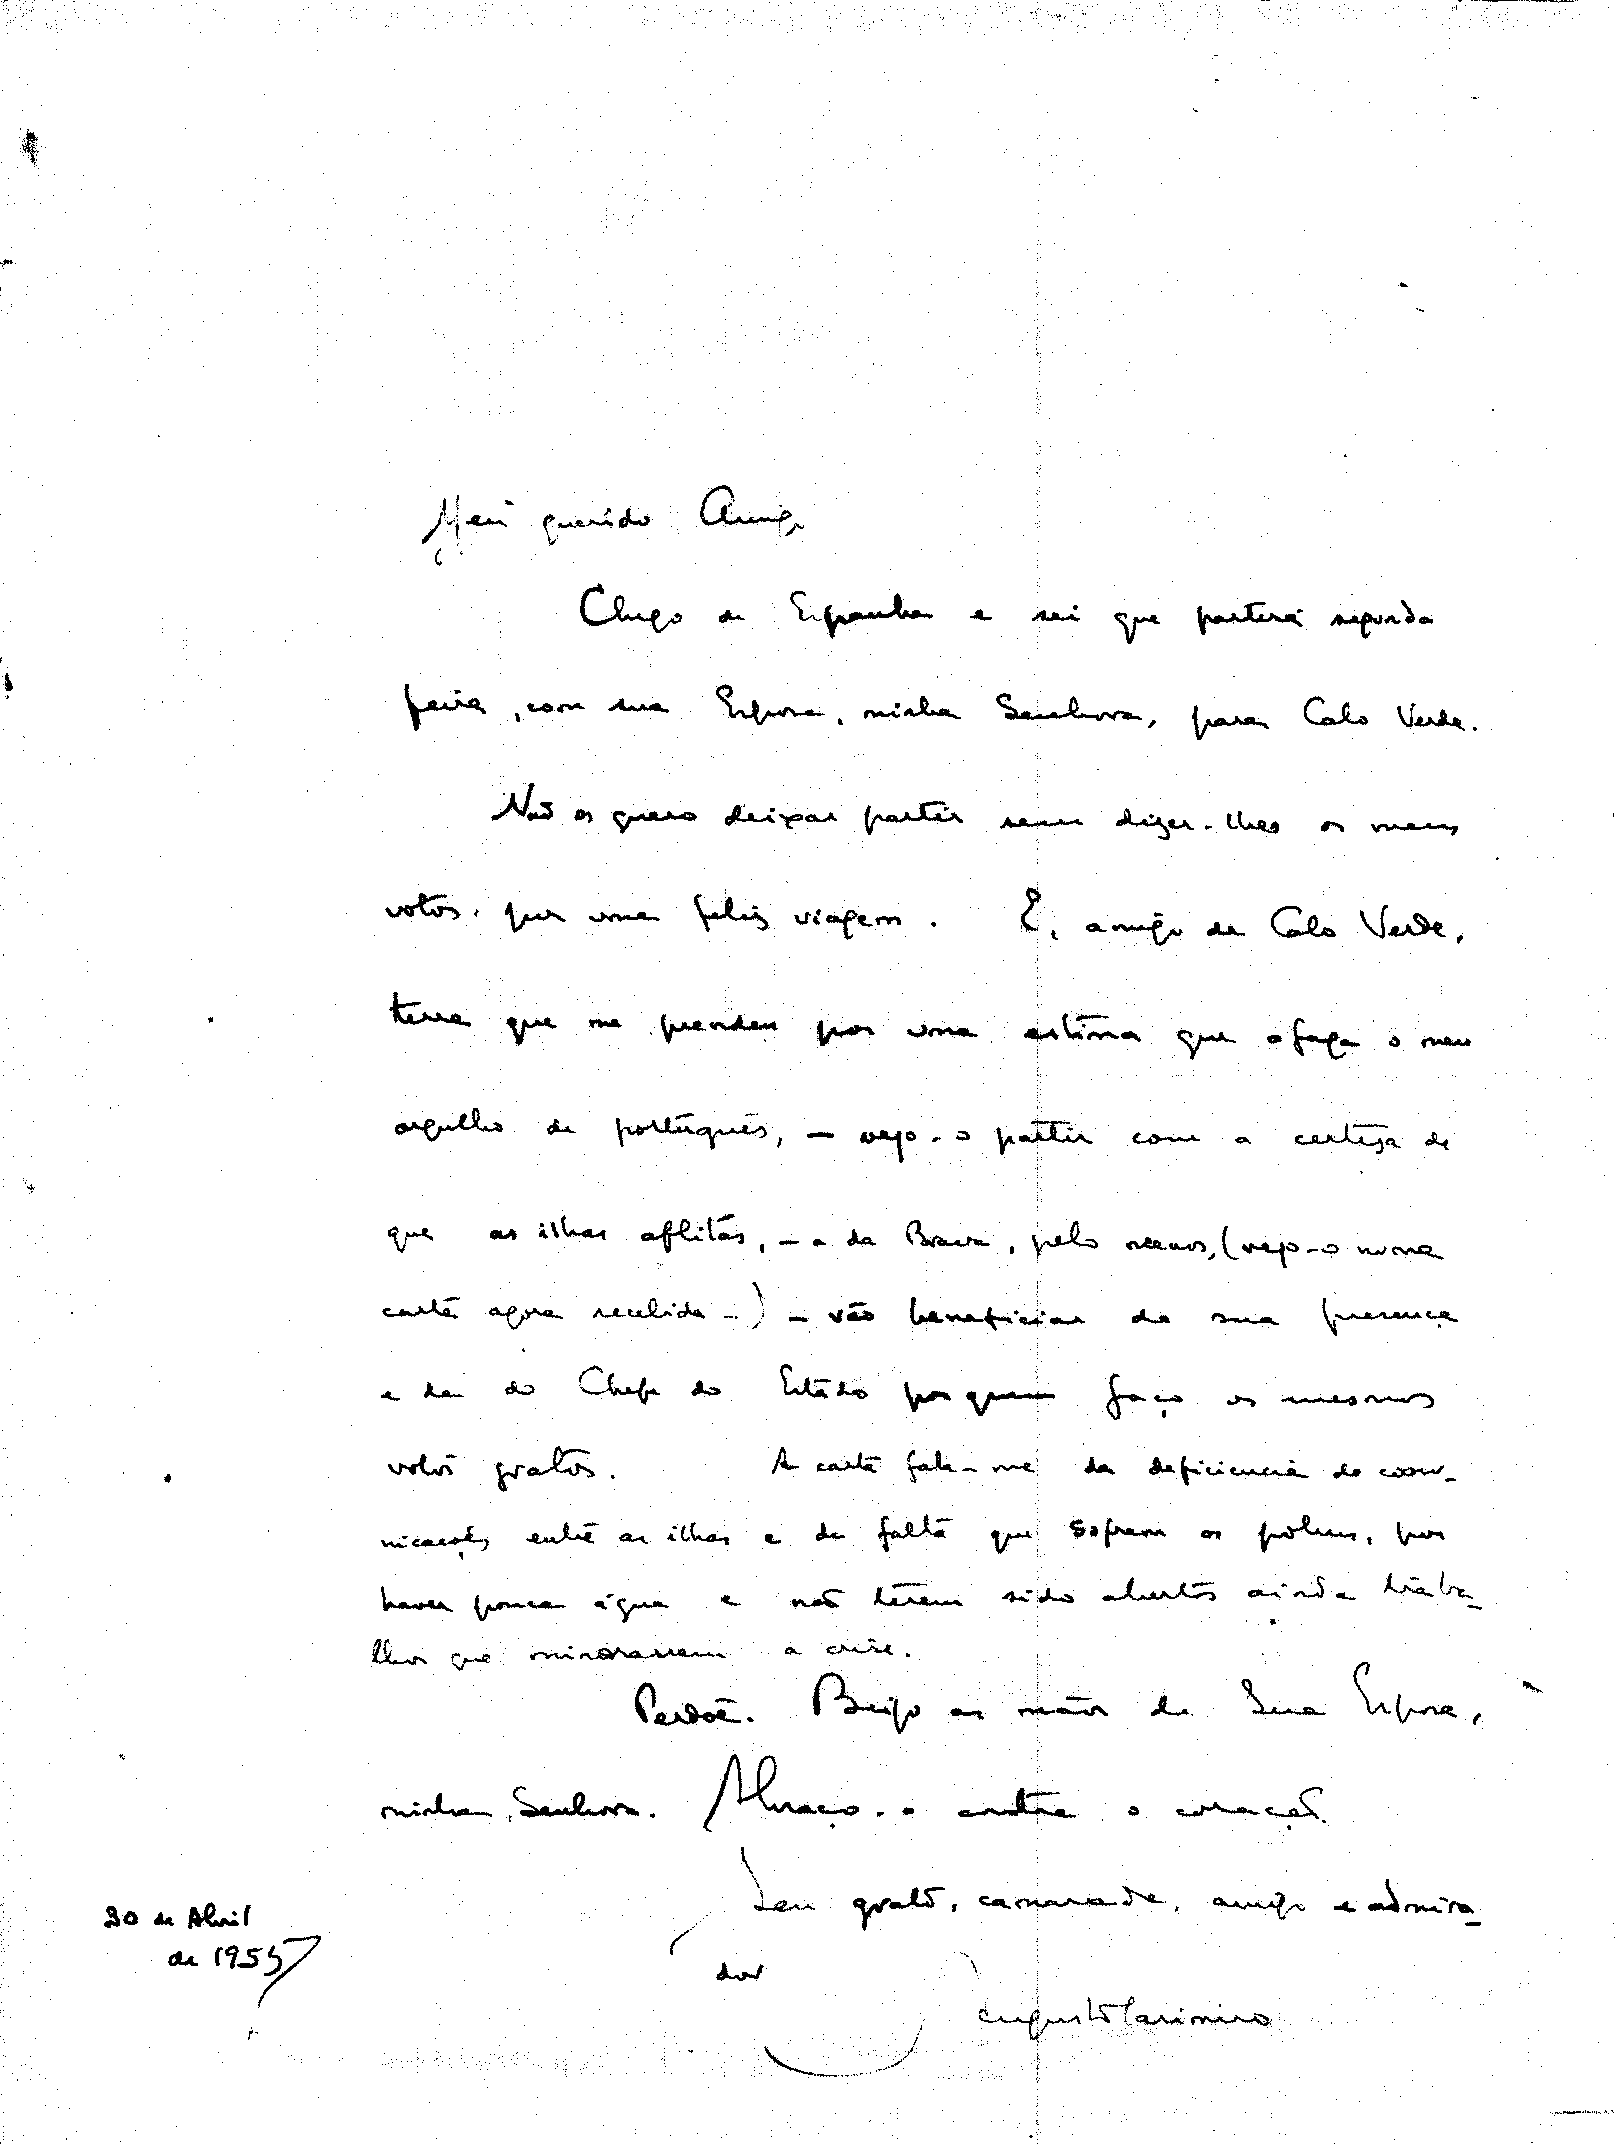 Meu querido Amigo
Chego de Espanha e sei que partirá segunda
feira, com sua Esposa, minha Senhora, para Cabo Verde.
Não os quero deixar partir sem dizer-lhes os meus
votos por uma feliz viagem. E, amigo de Cabo Verde,
terra que me prendeu por uma estima que afaga o meu
orgulho de português, - vejo-o partir com a certeza de
que as ilhas aflitas, - a da Brava, pelo menos, (vejo-o numa
carta agora recebida -) - vão beneficiar da sua presença
e da do Chefe do Estado por quem faço os mesmos
votos gratos. A carta fala-me da deficiencia de comu-
nicações entre as ilhas e da falta que sofrem os pobres, por
haver pouca água e não terem sido abertos ainda traba-
lhos que minorassem a crise.
Perdoe. Beijo as mãos de Sua Esposa,
minha Senhora. Abraço-o contra o coração.
Seu grato, camarada, amigo e admira-
dor
Augusto Casimiro
30 de Abril
de 1955